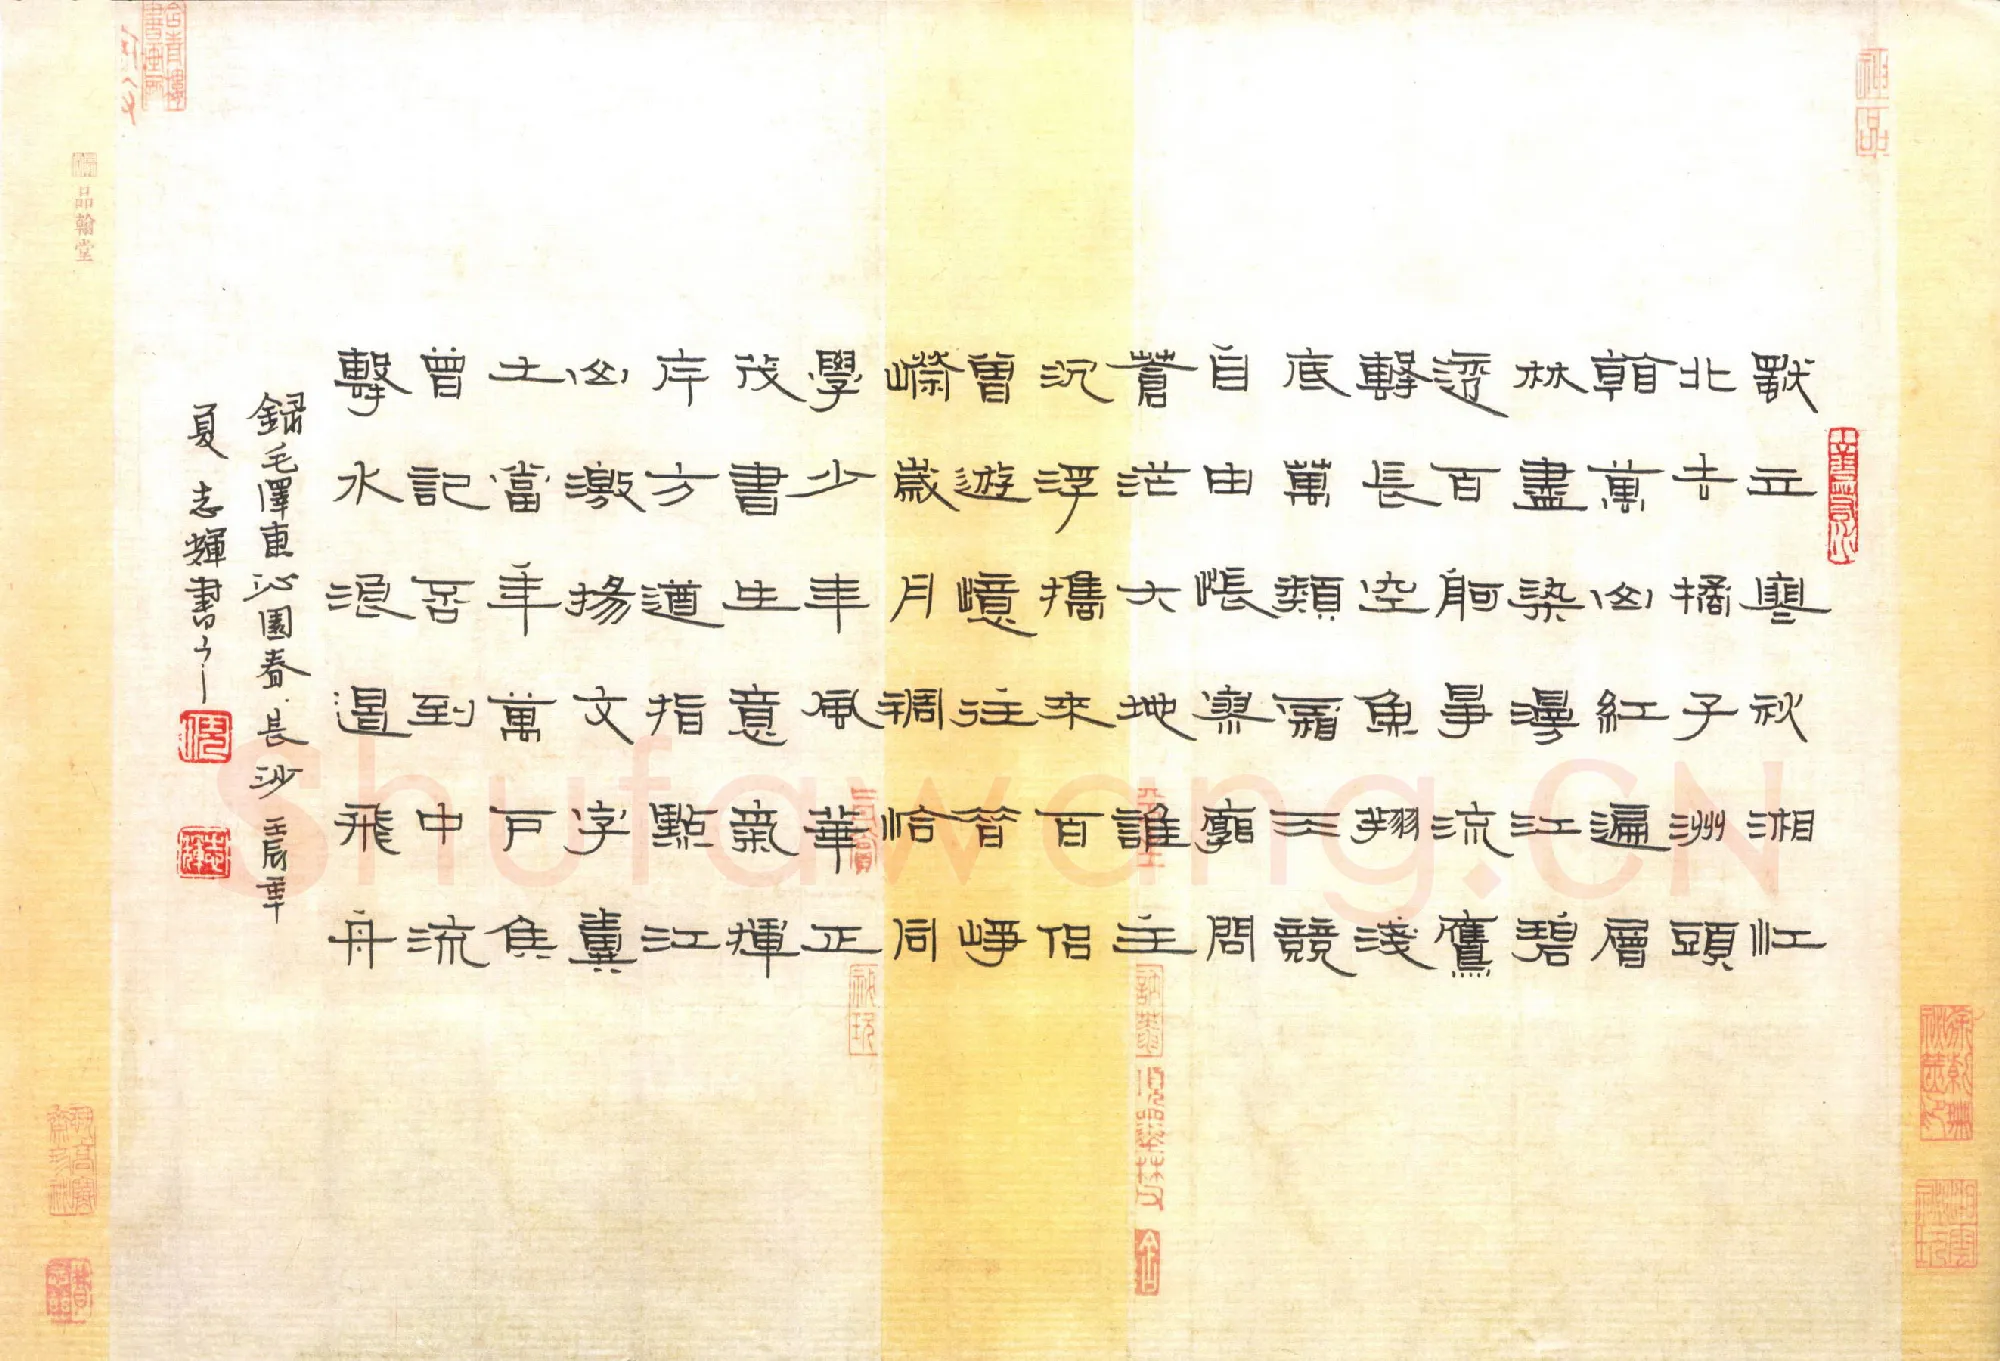 獨立寒秋湘江
北去橘子洲頭
看萬山紅遍層
林盡染漫江碧
透百舸爭流鷹
擊長空魚翔淺
底萬類霜天競
自由悵寥廓問
蒼茫大地誰主
沉浮攜來百侶
曾遊憶往昔崢
嶸歲月稠恰同
學少年風華正
茂書生意氣揮
斥方遒指點江
山激揚文字糞
土當年萬戶侯
曾記否到中流
擊水浪遏飛舟
錄毛澤東沁園春長沙壬辰年
夏志輝書
志輝
神品
品翰堂
Shufawang.CN